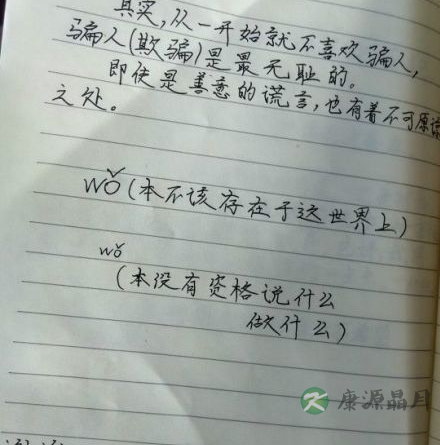 其实,从一开始就不喜欢骗人,
骗人(欺骗)是最无耻的。
即使是善意的谎言,也有着不可原谅
之处。
wǒ(本不该存在于这世界上)
wǒ
(本没有资格说什么
做什么)
康源晶目